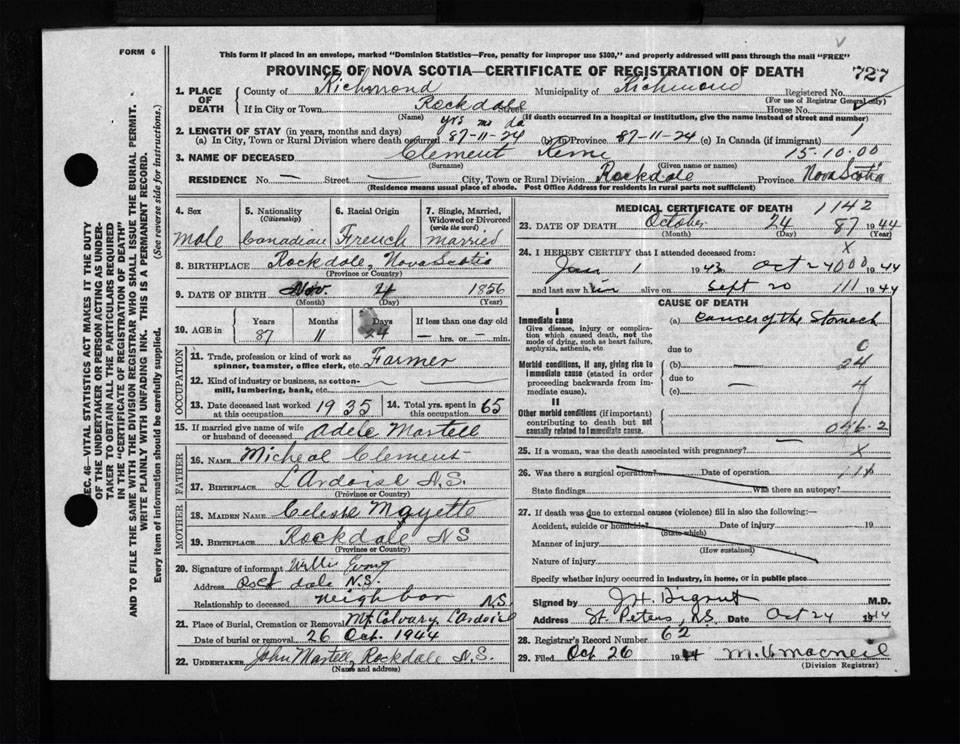 FORM 6
This form if placed in an envelope, marked "Dominion Statistics—Free, penalty for improper use $300," and properly addressed will pass through the mail "FREE"
PROVINCE OF NOVA SCOTIA—CERTIFICATE OF REGISTRATION OF DEATH
727
1. PLACE OF DEATH
County of Richmond Municipality of Richmond Registered No.
(For use of Registrar General only)
If in City or Town Rockdale Street House No.
(Name) (If death occurred in a hospital or institution, give the name instead of street and number)
yrs mo da
2. LENGTH OF STAY (in years, months and days)
(a) In City, Town or Rural Division where death occurred 87-11-24 (b) In Province 87-11-24 (c) In Canada (if immigrant)
3. NAME OF DECEASED Clement 15-10-00
(Surname) (Given name or names)
RESIDENCE No. — Street — City, Town or Rural Division Rockdale Province Nova Scotia
(Residence means usual place of abode. Post Office Address for residents in rural parts not sufficient)
4. Sex
male
5. Nationality (Citizenship)
Canadian
6. Racial Origin
French
7. Single, Married, Widowed or Divorced (write the word)
married
8. BIRTHPLACE Rockdale, Nova Scotia
(Province or Country)
9. DATE OF BIRTH Nov. 4 1856
(Month) (Day) (Year)
10. AGE in
Years Months Days If less than one day old
87 11 24 — hrs. or — min.
OCCUPATION
11. Trade, profession or kind of work as spinner, teamster, office clerk, etc. Farmer
12. Kind of industry or business, as cotton-mill, lumbering, bank, etc.
13. Date deceased last worked at this occupation 1935
14. Total yrs. spent in this occupation 65
15. If married give name of wife or husband of deceased Adele Martell
FATHER
16. NAME Micheal Clement
17. BIRTHPLACE L'Ardoise N.S.
(Province or Country)
MOTHER
18. MAIDEN NAME Celeste Mayette
19. BIRTHPLACE Rockdale NS
(Province or Country)
20. Signature of informant
Address Rockdale N.S.
Relationship to deceased neighbor
N.S.
21. Place of Burial, Cremation or Removal Mt Calvary, L'Ardoise
Date of burial or removal 26 Oct. 1944
22. UNDERTAKER John Martell, Rockdale N.S.
(Name and address)
MEDICAL CERTIFICATE OF DEATH
1142
23. DATE OF DEATH October 24 87 1944
(Month) (Day) (Year)
24. I HEREBY CERTIFY that I attended deceased from: X
Jan 1 1943 Oct 24 000 1944
and last saw him alive on Sept 20 111 1944
CAUSE OF DEATH
I
Immediate cause
Give disease, injury or complication which caused death, not the mode of dying, such as heart failure, asphyxia, asthenia, etc.
(a) Cancer of the Stomach
due to 0
Morbid conditions, if any, giving rise to immediate cause (stated in order proceeding backwards from immediate cause).
(b) — 24
due to 4
(c) —
II
Other morbid conditions (if important) contributing to death but not causally related to immediate cause.
046-2
25. If a woman, was the death associated with pregnancy? X
26. Was there a surgical operation? Date of operation 11
State findings Was there an autopsy?
27. If death was due to external causes (violence) fill in also the following:—
Accident, suicide or homicide? Date of injury 19
(State which)
Manner of injury
(How sustained)
Nature of injury
Specify whether injury occurred in industry, in home, or in public place
Signed by M.D.
Address St. Peters, N.S. Date Oct 24 1944
28. Registrar's Record Number 62
29. Filed Oct 26 1944 M. MacNeil
(Division Registrar)
SEC. 46—VITAL STATISTICS ACT MAKES IT THE DUTY
OF THE UNDERTAKER OR PERSON ACTING AS UNDER-
TAKER TO OBTAIN ALL THE PARTICULARS REQUIRED
IN THE "CERTIFICATE OF REGISTRATION OF DEATH"
AND TO FILE THE SAME WITH THE DIVISION REGISTRAR WHO SHALL ISSUE THE BURIAL PERMIT.
WRITE PLAINLY WITH UNFADING INK. THIS IS A PERMANENT RECORD.
Every item of information should be carefully supplied. (See reverse side for instructions.)